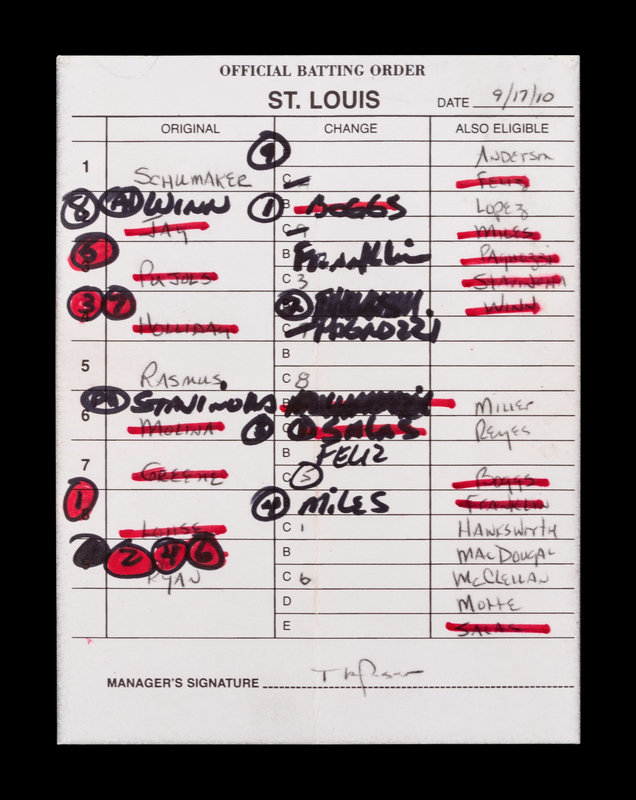 OFFICIAL BATTING ORDER
ST. LOUIS
DATE 9/17/10
ORIGINAL CHANGE ALSO ELIGIBLE
9 ANDERSON
1 SCHUMAKER C FELIZ
8 WINN 1 B BOGGS LOPEZ
JAY C 9 MILES
5 B FRANKLIN PAGNOZZI
PUJOLS C 3 STAVINOHA
3 7 2 WINN
HOLLIDAY C PAGNOZZI
B
5 RASMUS C 8
PH STAVINOHA B MILLER
6 MOLINA 3 C 1 SALAS REYES
B FELIZ
7 GREENE C 5 BOGGS
1 4 MILES FRANKLIN
LOHSE C 1 HAWKSWORTH
2 4 6 B MACDOUGAL
RYAN C 6 MCCLELLAN
D MOTTE
E SALAS
MANAGER'S SIGNATURE